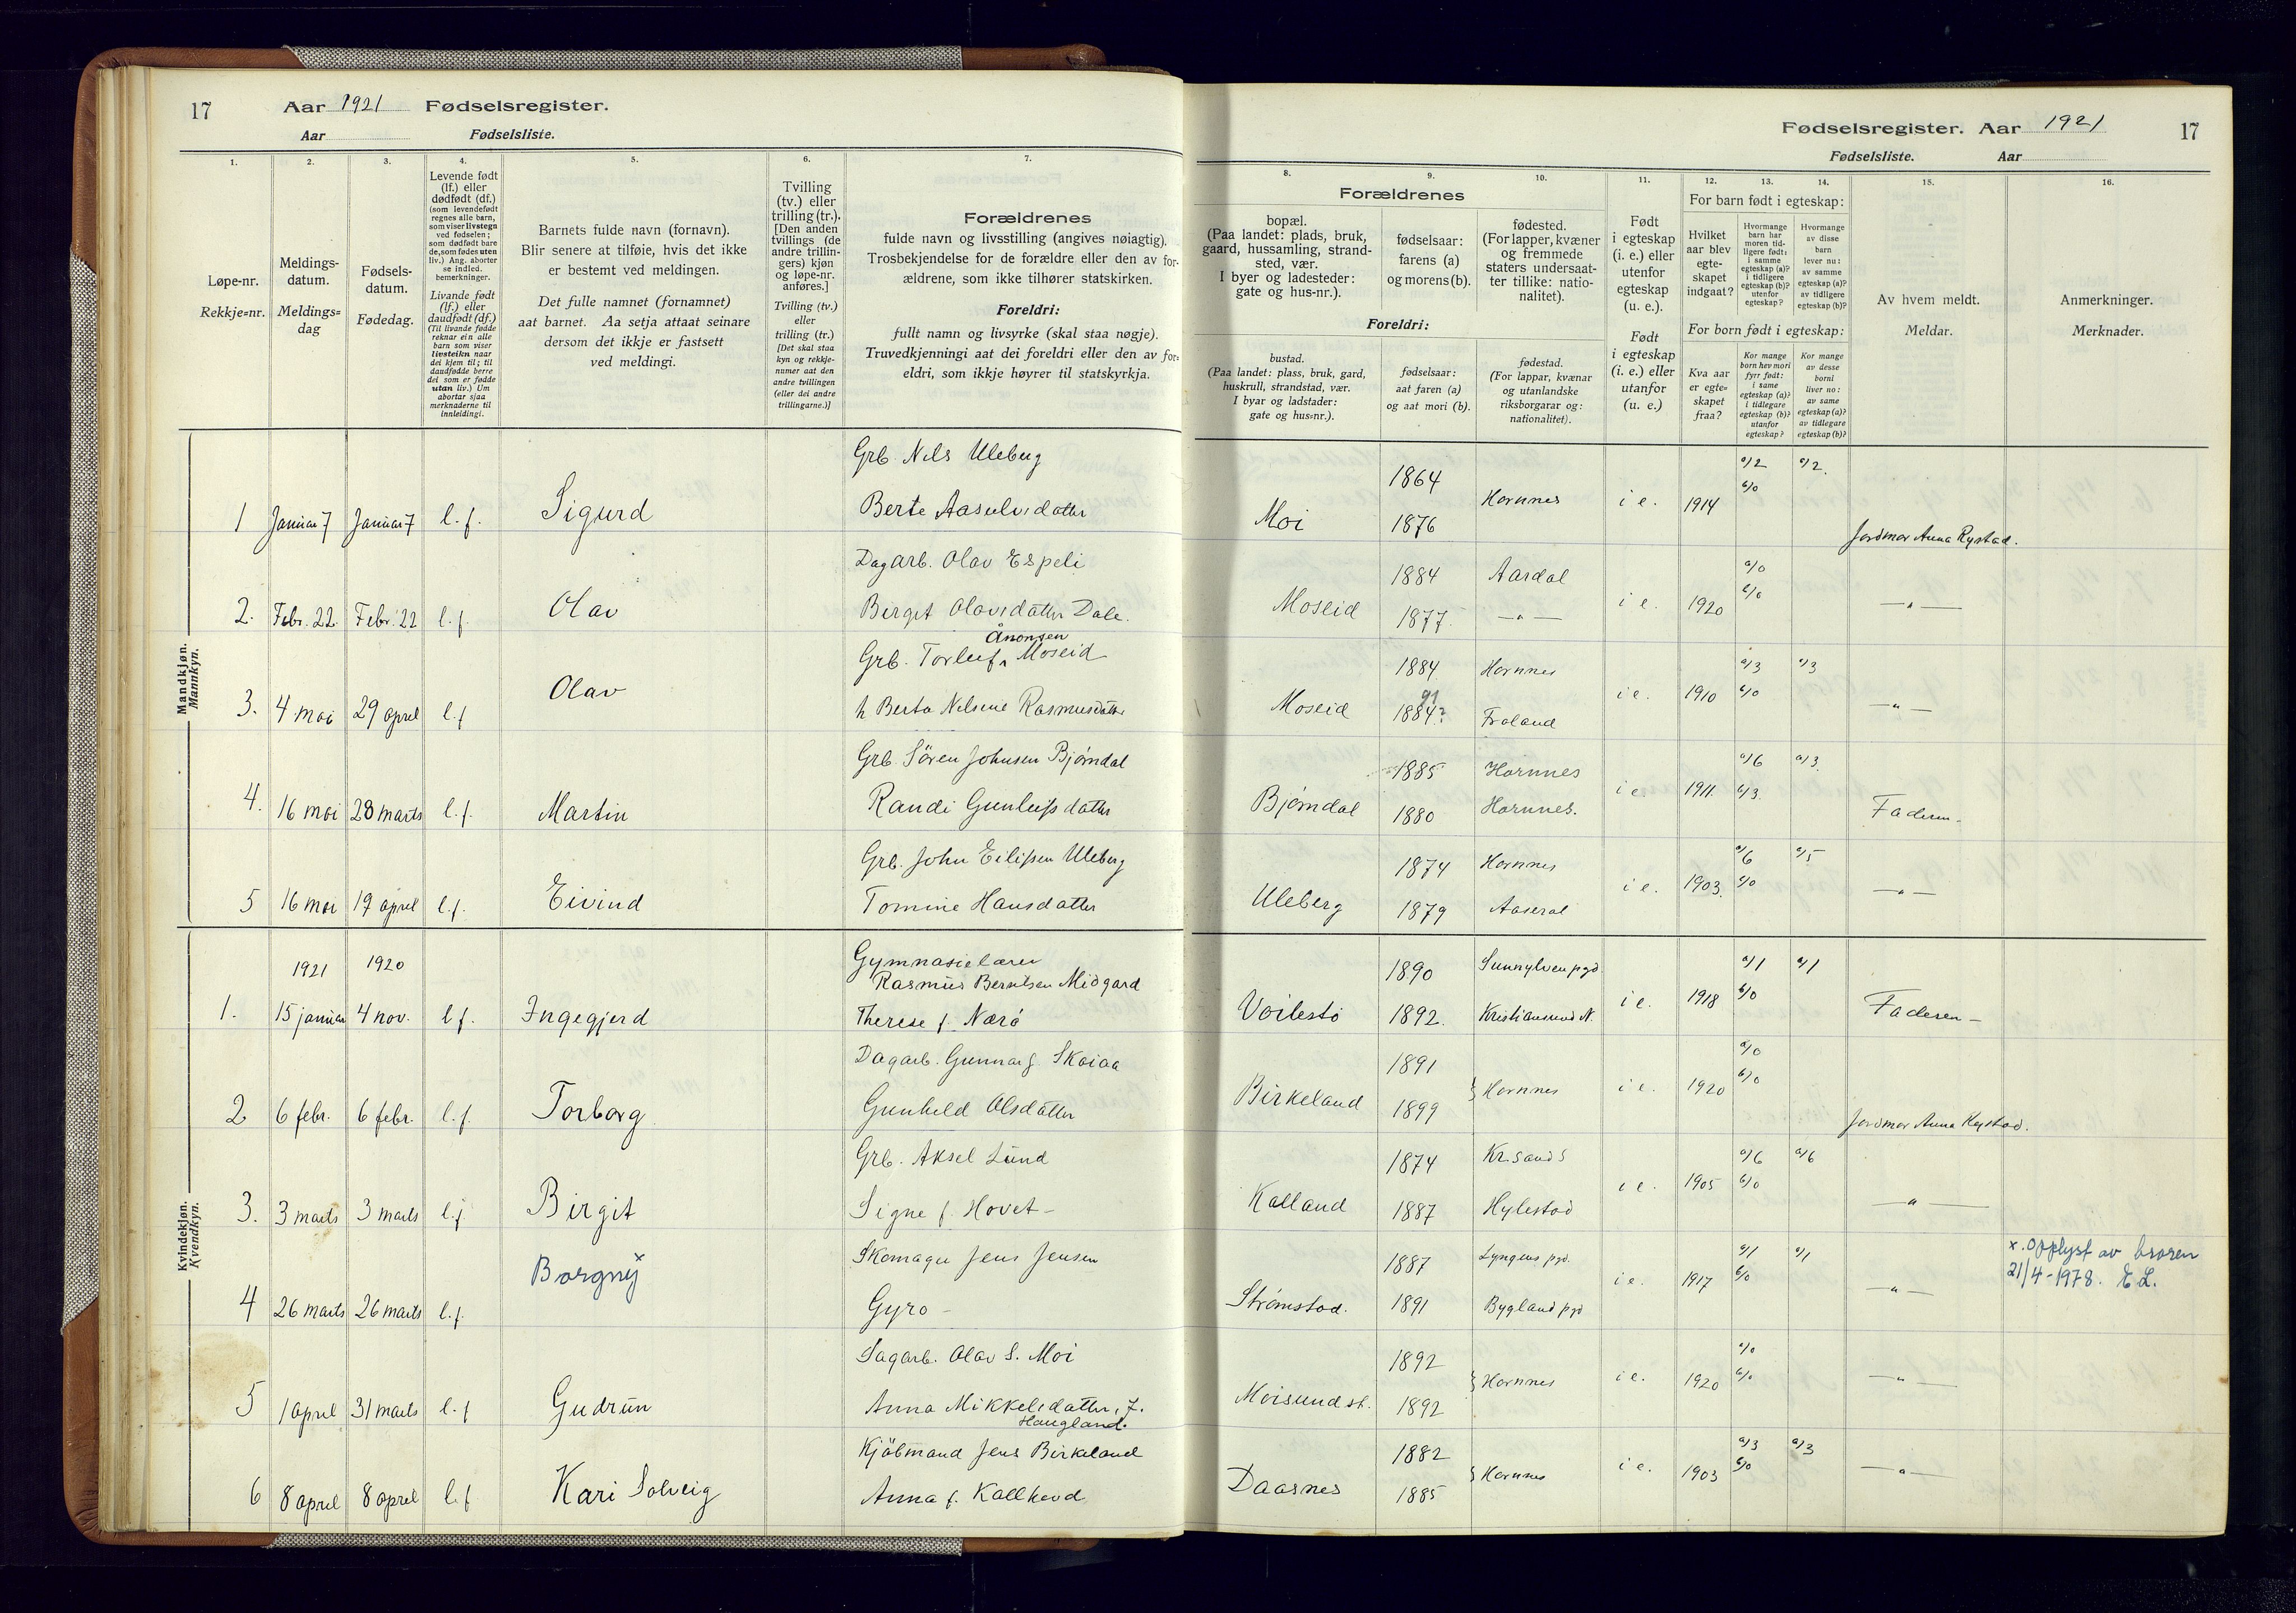 17 Aar 1921 Fødselsregister.
Aar Fødselsliste.
1. 2. 3. 4. 5. 6. 7.
Løpe-nr.
Rekkje=nr.
Meldings-
datum.
Meldings=
dag
Fødsels-
datum.
Fødedag.
Levende født
(lf.) eller
dødfødt (df.)
(som levendefødt
regnes alle barn,
som viser livstegn
ved fødselen;
som dødfødt bare
de, som fødes uten
liv.) Ang. aborter
se indled.
bemerkninger.
Livande født
(lf.) eller
daudfødt (df.)
(Til livande fødde
reknar ein alle
barn som viser
livsteikn naar
dei kjem til; til
daudfødde berre
dei som er fødde
utan liv.) Um
abortar sjaa
merknaderne til
innleidingi.
Barnets fulde navn (fornavn).
Blir senere at tilføie, hvis det ikke
er bestemt ved meldingen.
Det fulle namnet (fornamnet)
aat barnet. Aa setja attaat seinare
dersom det ikkje er fastsett
ved meldingi.
Tvilling
(tv.) eller
trilling (tr.).
[Den anden
tvillings (de
andre trillin-
gers) kjøn
og løpe-nr.
anføres.]
Tvilling (tv.)
eller
trilling (tr.)
[Det skal staa
kyn og rekkje-
numer aat den
andre tvillingen
(eller dei andre
trillingarne.)]
Forældrenes
fulde navn og livsstilling (angives nøiagtig).
Trosbekjendelse for de forældre eller den av for-
ældrene, som ikke tilhører statskirken.
Foreldri:
fullt namn og livsyrke (skal staa nøgje).
Truvedkjenningi aat dei foreldri eller den av for=
eldri, som ikkje høyrer til statskyrkja.
Mandkjøn.
Mannkyn.
Grb. Nils Uleberg
1 Januar 7 Januar 7 l. f. Sigurd Berte Aasulvsdatter
Dagarb. Olav Espeli
2. Febr. 22. Febr. 22 l. f. Olav Birgit Olavsdatter Dale.
Ånonsen
Grb. Torleif Moseid
3. 4 mai 29 april l. f Olav h Berta Nelsine Rasmusdatter
Grb. Søren Johnsen Bjørndal
4. 16 mai 28 marts l. f. Martin Randi Gunleifsdatter
Grb. John Eilifsen Uleberg
5 16 mai 19 april l. f. Eivind Tomine Hansdatter
Kvindekjøn.
Kvendkyn.
1921 1920 Gymnasielærer
Rasmus Berntsen Midgard
1. 15 januar 4 nov. l f. Ingegjerd Therese f. Nærø
Dagarb. Gunnar J. Skaiaa
2 6 febr. 6 febr. l. f. Torborg Gunheld Olsdatter
Grb. Aksel Lund
3. 3 marts 3 marts l. f. Birgit Signe f. Hovet -
Borgny x Skomager Jens Jensen
4 26 marts 26 marts l. f. Gyro -
Sagarb. Olav S. Moi
5 1 april 31 marts l. f Gudrun Anna Mikkelsdatter, f.
Haugland.
Kjøbmand Jens Birkeland
6 8 april 8 april l. f Kari Solveig Anna f. Kallhovd
Fødselsregister. Aar 1921 17
Fødselsliste. Aar
8. 9. 10. 11. 12. 13. 14. 15. 16.
Forældrenes
bopæl.
(Paa landet: plads, bruk,
gaard, hussamling, strand-
sted, vær.
I byer og ladesteder:
gate og hus-nr.).
fødselsaar:
farens (a)
og morens (b).
fødested.
(For lapper, kvæner
og fremmede
staters undersaat-
ter tillike: natio-
nalitet).
Foreldri:
bustad.
(Paa landet: plass, bruk, gard,
huskrull, strandstad, vær.
I byar og ladstader:
gate og hus=nr.).
fødselsaar:
aat faren (a)
og aat mori (b).
fødestad.
(For lappar, kvænar
og utanlandske
riksborgarar og:
nationalitet).
Født
i egteskap
(i. e.) eller
utenfor
egteskap
(u. e.).
Født
i egteskap
(i. e.) eller
utanfor
(u. e.)
For barn født i egteskap:
Hvilket
aar blev
egte-
skapet
indgaat?
Hvormange
barn har
moren tid-
ligere født:
i samme
egteskap (a)?
i tidligere
egteskap (b)?
utenfor
egteskap?
Hvormange
av disse
barn
lever nu:
av samme
egteskap (a)?
av tidligere
egteskap (b)?
For born født i egteskap:
Kva aar
er egte=
skapet
fraa?
Kor mange
born hev mori
fyrr født:
i same
egteskap (a)?
i tidlegare
egteskap (b)?
utanfor
egteskap?
Kor mange
av desse
borni
liver no:
av same
egteskap (a)?
av tidlegare
egteskap (b)?
Av hvem meldt.
Meldar.
Anmerkninger.
Merknader.
Moi 1864 1876 Hornnes i e. 1914 a/2 b/0 a/2. Jordmor Anna Rystad.
Moseid 1884 Aardal i e. 1920 a/0 b/0 — " —
1877. — " —
Moseid 1884 Hornnes i e. 1910 a/3 b/0 a/3 — " —
91
1884? Froland
Bjørndal 1885 Hornnes i e. 1911. a/6 b/3 a/3. Faderen -
1880 Hornnes.
Uleberg 1874 Hornnes i e. 1903. a/6 b/0 a/5 — " —
1879 Aaseral
Voilestø 1890 Sunnylven pgd. i e. 1918 a/1 b/0 a/1 Faderen -
1892. Kristiansund N.
Birkeland 1891 1899 } Hornnes i e. 1920 a/0 b/0 Jordmor Anna Rystad.
Kalland 1874 Kr.sand S i e. 1905 a/6 b/0 a/6 — " —
1887 Hylestad
Strømstad. 1887 Lyngens pgd. i e. 1917 a/1 b/0 a/1 — " — x. Opplyst av broren
21/4-1978. E L.
1891 Bygland pgd
Moisund st. 1892 1892 } Hornnes i e. 1920 a/0 b/0 — " —
Daasnes 1882 1885 } Hornnes i e. 1903 a/3 b/0 a/3 — " —